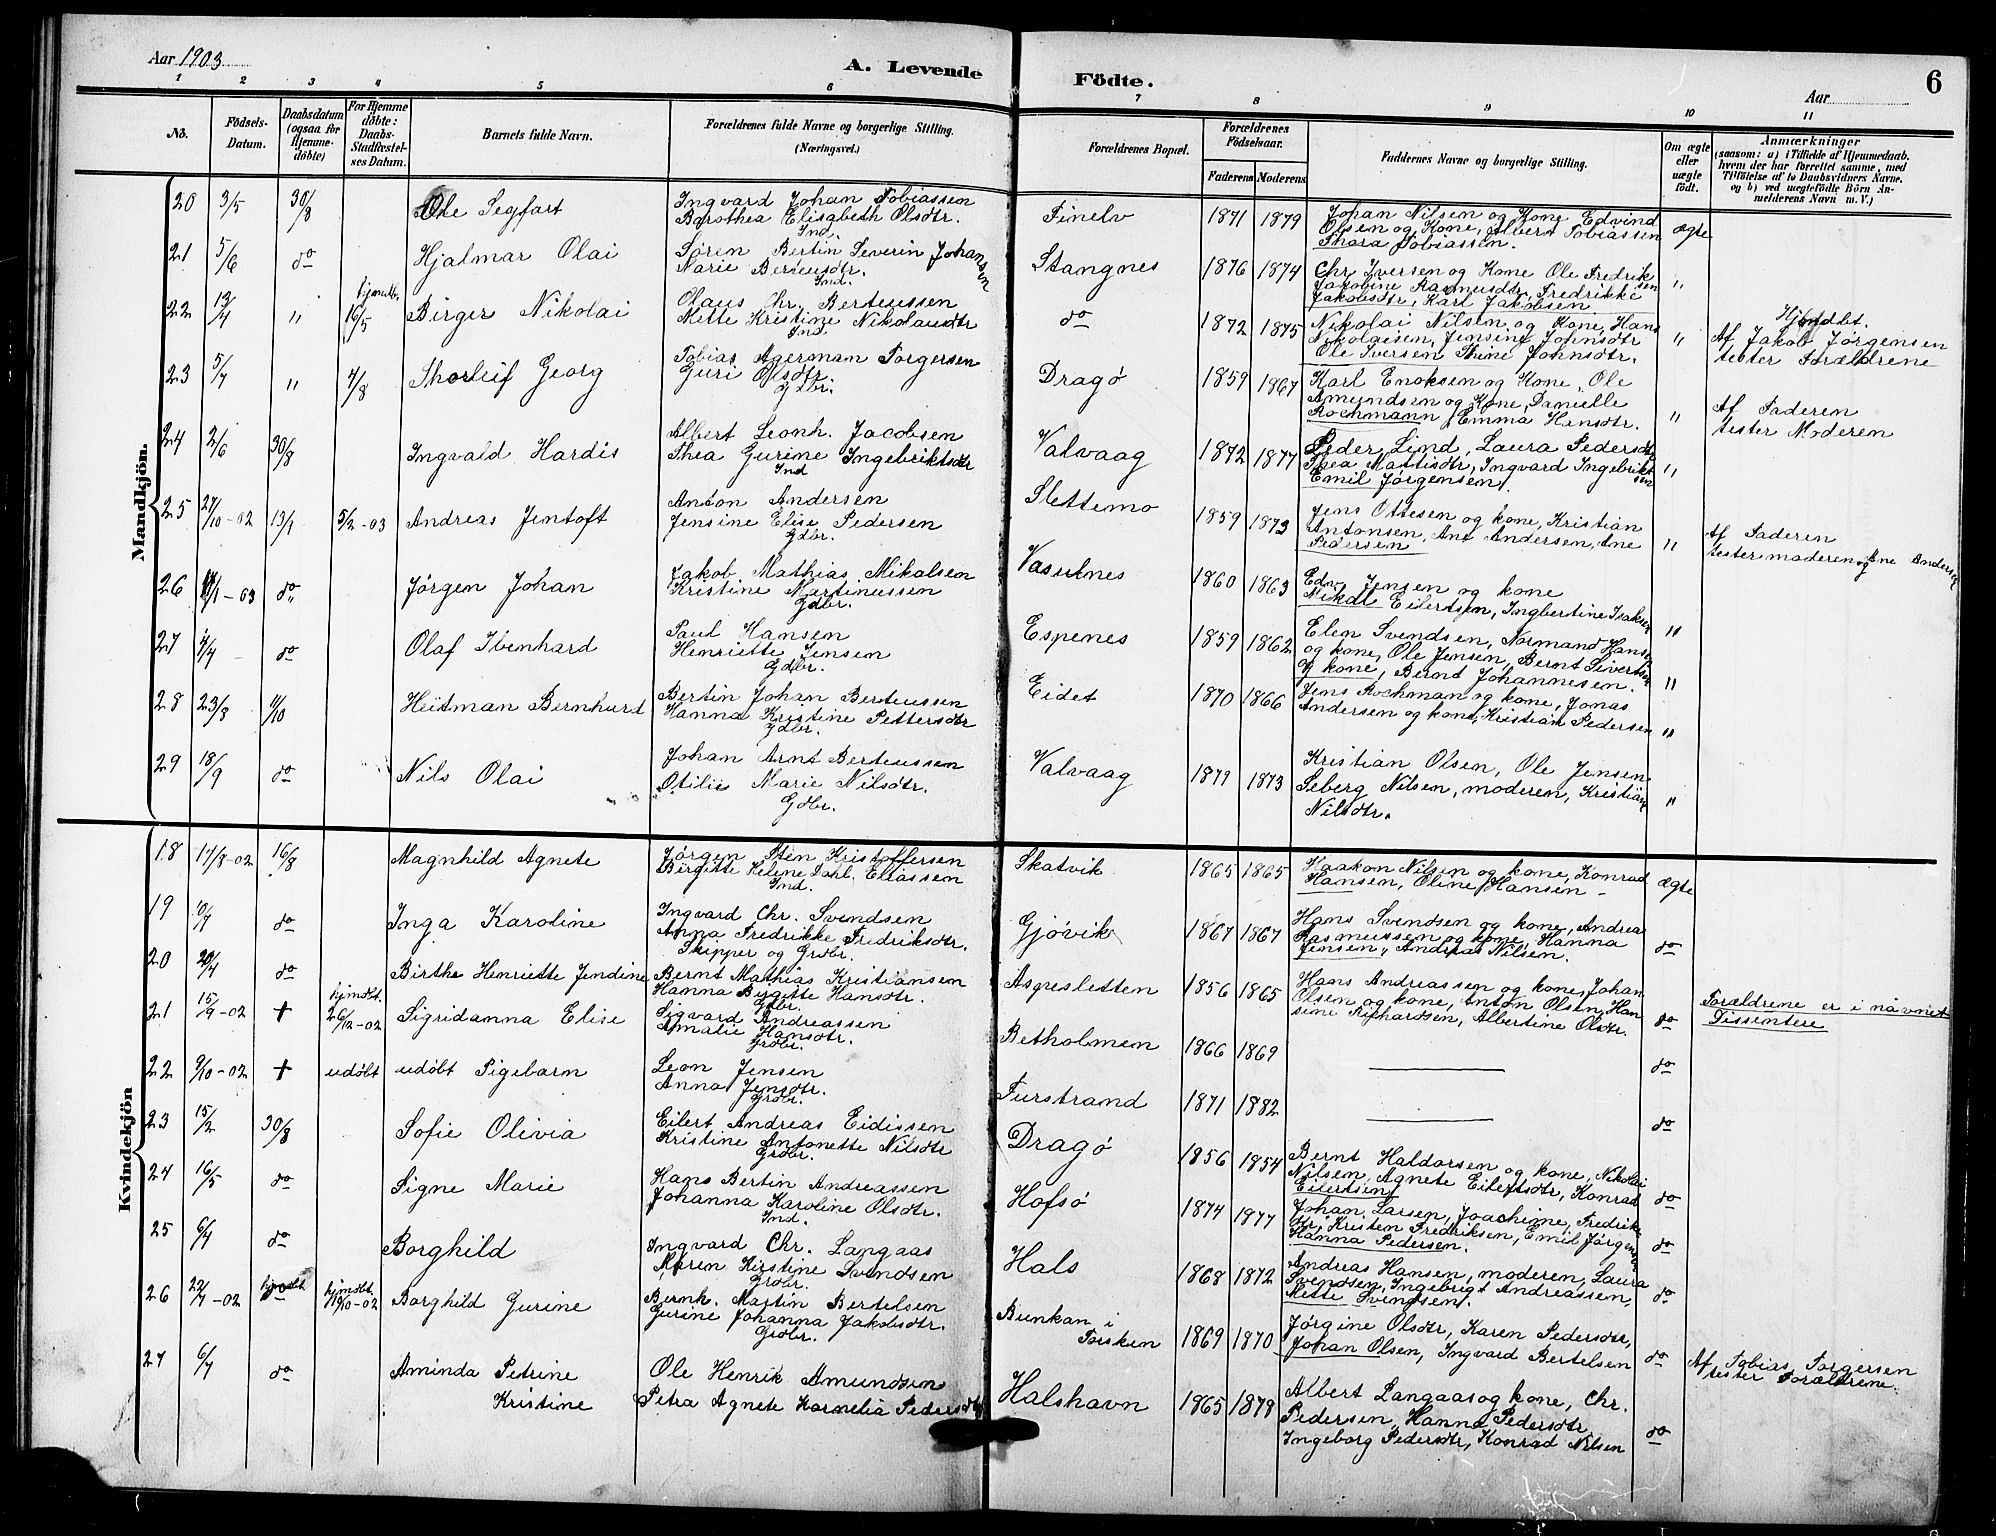 Aar 1903
A. Levende
Födte.
6
Aar
1 2 3 4 5 6 7 8 9 10 11
No.
Födsels-
Datum.
Daabsdatum
(ogsaa for
Hjemme-
döbte)
For Hjemme
döbte:
Daabs-
Stadfæstel-
ses Datum.
Barnets fulde Navn.
Forældrenes fulde Navne og borgerlige Stilling.
(Næringsvei.)
Forældrenes Bopæl.
Forældrenes
Födselsaar.
Faderens Moderens
Faddernes Navne og borgerlige Stilling.
Om ægte
eller
uægte
födt.
Anmærkninger
(saasom: a) i Tilfælde af Hjemmedaab.
hvem der har forrettet samme, med
Tilföielse af to Daabsvidners Navne.
og b) ved uegtefödte Börn An-
melderens Navn m. V.)
Mandkjön.
20 3/5 30/8 Ole Segfart
Ingvard Johan Tobiassen
Dorothea Elisabeth Olsdtr.
Ind.
Finelv 1871 1879
Johan Nilsen og Kone Edvind
Olsen og Kone, Albert Tobiassen
Thora Tobiassen.
ægte
21 5/6 do Hjalmar Olai
Søren Bertin Severin Johansen
Marie Berteusdtr.
Ind.
Stangnes 1876 1874
Chr Iversen og Kone Ole Fredriksen
Jakobine Rasmusdtr, Fredrikke
Jakobsdtr, Karl Jakobsen
"
22 13/4 " hjemdb. 16/5 Birger Nikolai
Olaus Chr. Berteussen
Mette Kristine Nikolausdtr
Ind
do 1872 1875
Nikolai Nilsen og Kone, Hans
Nikolaisen, Jensine Johnsdtr
Ole Iversen Stine Johnsdtr.
"
Hjmdbt.
Af Jakob Jørgensen
tester Forældrene
23 5/7 " 4/8 Thorleif Georg
Tobias Agerman Torgersen
Guri Olsdtr
Gdbr.
Dragø 1859 1867
Karl Enoksen og Kone, Ole
Amundsen og Kone, Danielle
Rochmann, Emma Hansdtr.
"
Af Faderen
tester Moderen
24 2/6 30/8 Ingvald Hardis
Albert Leonh. Jacobsen
Thea Gurine Ingebriktsdtr
Ind
Valvaag 1872 1877
Peder Lind, Laura Pedersdtr
Thea Mattisdtr, Ingvard Ingebriktsen
Emil Jørgensen.
"
25 27/10-02 13/1 5/2-03 Andreas Jentoft
Anton Andersen
Jensine Elise Pedersen
Gdbr.
Slettemo 1859 1873
Jens Ottesen og kone, Kristian
Antonsen, Ant Andersen, Ane
Pedersen
"
Af Faderen
tester moderen og Ane Andersen
26 11/1-03 do" Jørgen Johan
Jakob Mathias Mikalsen
Kristine Martinussen
Gdbr.
1860 1863
Edv. Jensen og kone
Mikal Eilertsen, Ingbertine Isaksen
"
27 4/4 do Olaf Ibenhard
Paul Hansen
Henriette Jensen
Gdbr.
Espenes 1859 1862
Elen Svendsen, Normand Hansen
og kone, Ole Jensen, Bernt Sivertsen
og kone, Bernt Johannesen.
"
28 23/8 11/10 Heitman Bernhard
Bertin Johan Berteussen
Hanna Kristine Pettersdtr
Gdbr.
Eidet 1870 1866
Jens Rochman og kone, Jonas
Andersen og kone, Kristian Pedersen
"
29 18/9 do Nils Olai
Johan Arnt Berteussen
Otilie Marie Nilsdtr.
Gdbr.
Valvaag 1879 1873
Kristian Olsen, Ole Jensen
Seberg Nilsen, moderen, Kristian
Nilsdtr.
"
Kvindekjön
18 17/8-02 16/8 Magnhild Agnete
Jørgen Sten Kristoffersen
Birgitte Helene Dahl. Eliassen
Ind.
Skatvik 1865 1865
Haakon Nilsen og kone, Konrad
Hansen, Oline Hansen -
ægte
19 10/7 do Inga Karoline
Ingvard Chr. Svendsen
Anna Fredrikke Fredriksdtr.
Skipper og Grdbr.
Gjøvik 1867 1867
Hans Svendsen og kone, Andrea
Rasmussen og kone, Hanna
Jensen, Andreas Nilsen.
do
20 29/4 do Birthe Henriette Jendine
Bernt Mathias Kristiansen
Hanna Birgitte Hansdtr.
Grdbr.
Aspesletten 1856 1865
Hans Andreassen og kone, Johan
Olsen og kone, Anton Olsen, Han
sine Richardsen, Albertine Olsdtr.
do
21 15/9-02 + hjmdbt. 26/12-02 Sigridanna Elise
Sigvard Andreassen
Amalie Hansdtr.
Grdbr.
Betholmen 1866 1869
do
Forældrene er i nävnet
Dissentere
22 9/10-02 + udöbt udöbt Pigebarn
Leon Jensen
Anna Jensdtr.
Grdbr.
Furstrand 1871 1882
do
23 15/2 30/8 Sofie Olivia
Eilert Andreas Eidissen
Kristine Antonette Nilsdtr
Grdbr.
Dragø 1856 1854
Bernt Haldorsen og kone, Nikolai
Nilsen, Agnete Eilertsdtr, Konrad
Eilertsen
do
24 16/5 do Signe Marie
Hans Bertin Andreassen
Johanna Karoline Olsdtr.
Ind.
Hofsö 1874 1877
Johan Larsen, Joachime, Fredrikke
Kr, Kristen Fredriksen, Emil Jørgensen
Hanna Pedersen.
do
25 6/4 do Borghild
Ingvard Chr. Langaas
Maren Kirstine Svendsen
Grdbr.
Hals 1868 1872
Andreas Hansen, moderen, Laura
Svendsen, Ingebrigt Andreassen,
Mette Svendsen.
do
26 22/7-02 hjmdbt hjmdbt. 19/10-02 Borghild Gurine
Bernh. Martin Bertelsen
Gurine Johanna Jakobsdtr.
Grdbr.
Bunkan i
Torsken 1869 1870
Jørgine Olsdtr, Karen Pedersdtr,
Johan Olsen, Ingvard Bertelsen
do
Af Tobias Torgersen
tester Forældrene.
27 6/7 do Aminda Petrine
Kristine
Ole Henrik Amundsen
Petra Agnete Kornelia Pedersdtr
Halshavn 1865 1879
Albert Langaas og kone, Chr.
Pedersen, Hanna Pedersdtr
Ingeborg Pedersdtr, Konrad Nilsen
do